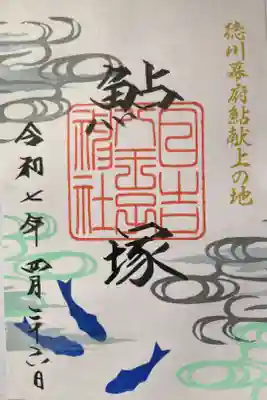 徳川幕府鮎献上の地
鮎塚
日吉
神社
令和七年 四月二十六日